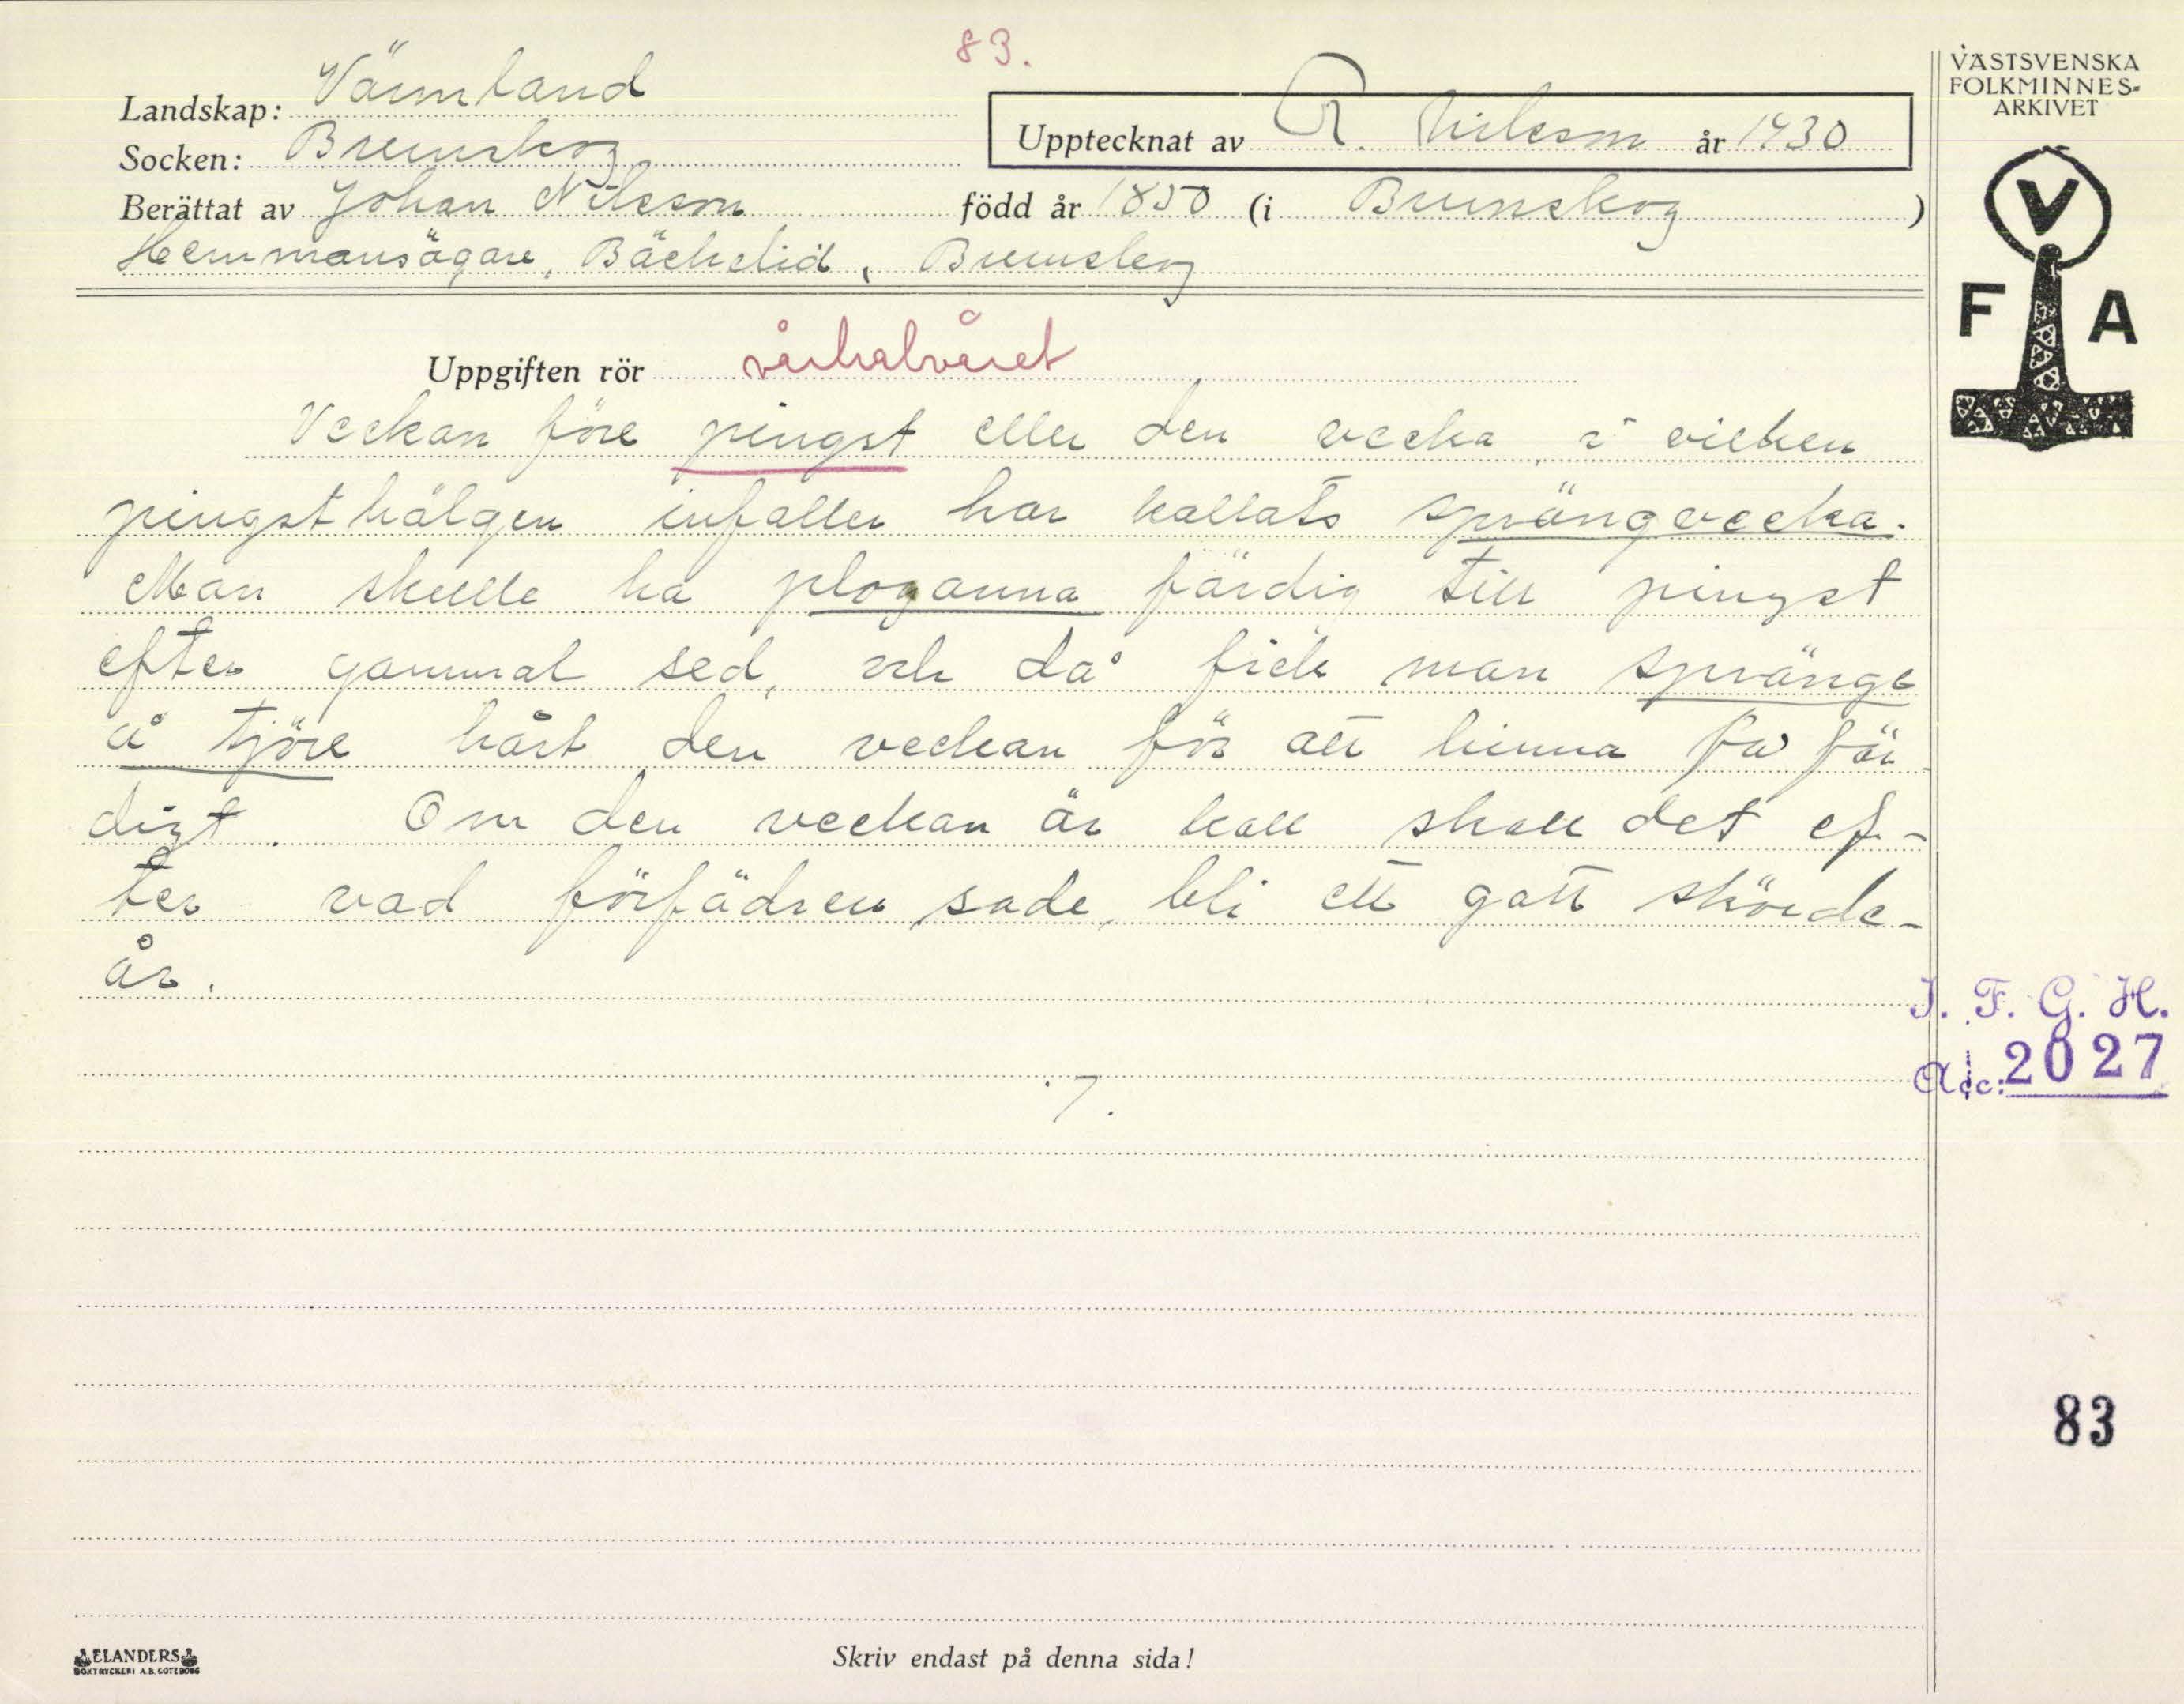 83.
VÄSTSVENSKA
FOLKMINNES-
ARKIVET
Landskap: Värmland
Upptecknat av R. Nilsson år 1930
Socken: Brunskog
Berättat av Johan Nilsson född år 1850 (i Brunskog)
Hemmansägare, Bäckelid, Brunskog
V
F A
Uppgiften rör vårhalvåret
Veckan före pingst eller den vecka i vilken
pingsthälgen infaller har kallats sprängvecka.
Man skulle ha ploganna färdig till pingst
efter gammal sed, och då fick man spränge
å tjöre hårt den veckan för att hinna få fär
digt. Om den veckan är kall skall det ef-
ter vad förfädren sade, bli ett gott skörde-
år.
I. F. G. H.
Acc: 2027
7.
83
ELANDERS
BOKTRYCKERI A.B. GÖTEBORG
Skriv endast på denna sida!